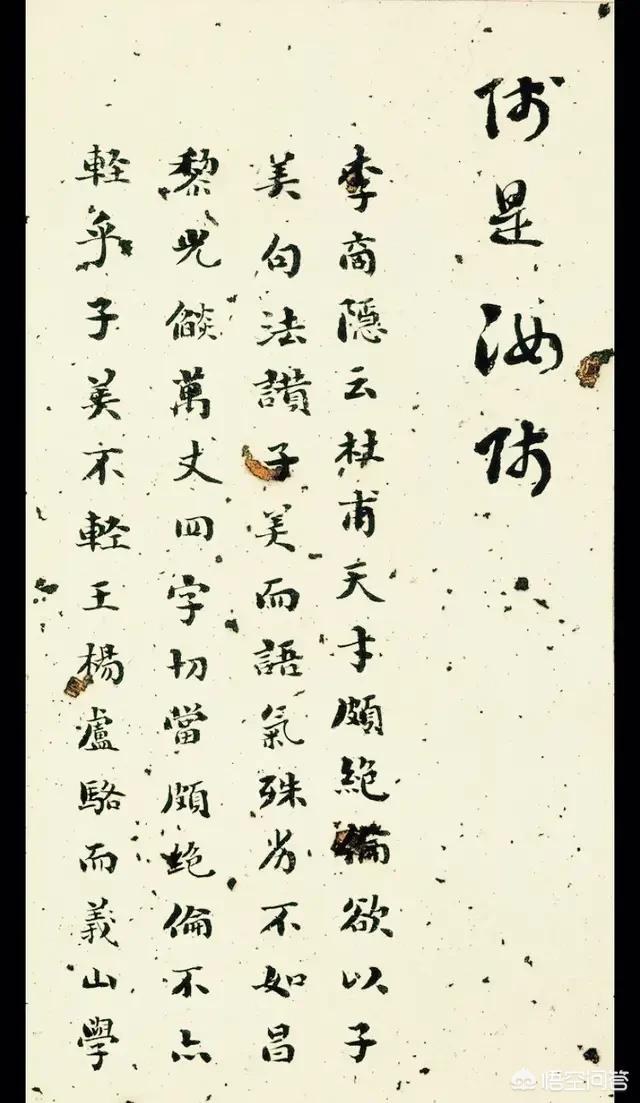 師是汝師
李商隱云杜甫天才頗絕倫欲以子
美句法讚子美而語氣殊劣不如昌
黎光燄萬丈四字切當頗絕倫不亦
輕乎子美不輕王楊盧駱而義山學
悟空问答